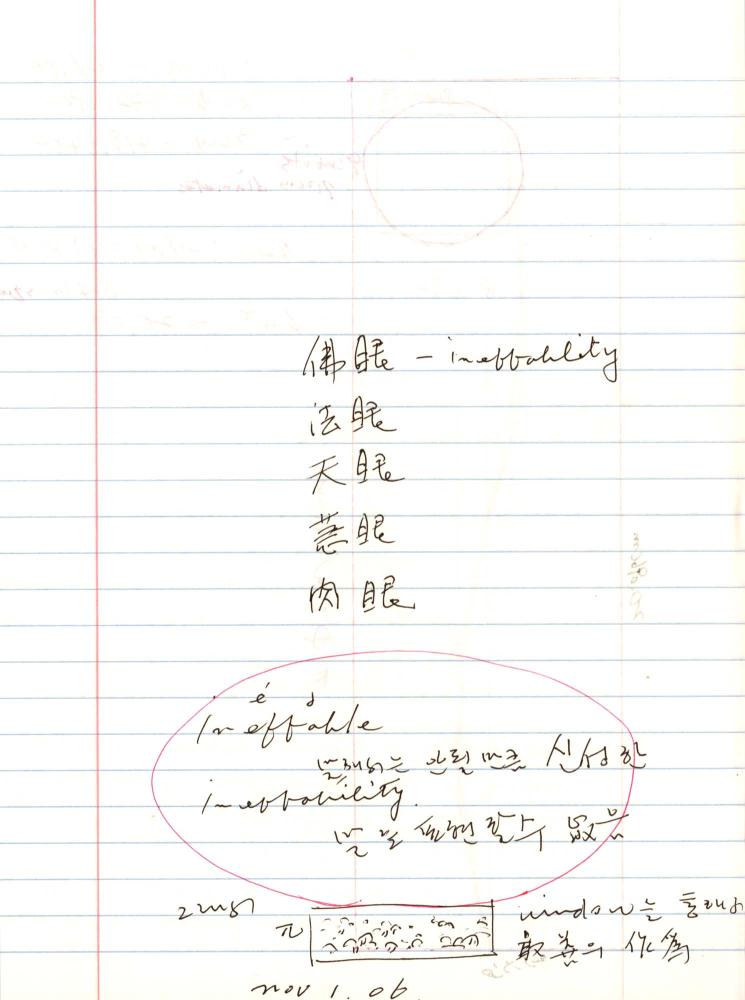 佛眼 – ineffability
法眼
天眼
慧眼
肉眼
é ə
ineffable
말해서는 안될 만큼 신성한
ineffability.
말로 표현할 수 없음
window를 통해서
最善의 作為
nov 1. 06